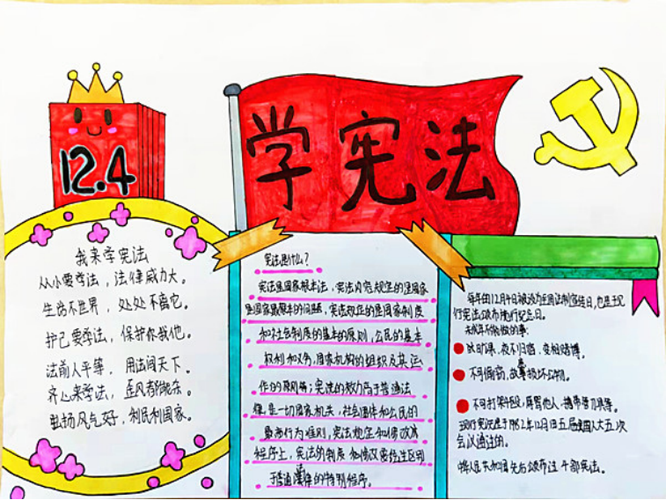 12.4
学宪法
我来学宪法
从小要学法，法律威力大。
生活不世界，处处不离它。
护己要学法，保护你我他。
法前人平等，用法问天下。
齐心来学法，歪风都抛杀。
弘扬风气好，利民利国家。
宪法是什么？
宪法是国家根本法，宪法内容规定的是国家
国家最根本的问题，宪法规定的是国家制度
和社会制度的基本的原则，公民的基本
权利和义务，国家机构的组织及其运
作的原则等；宪法的效力高于普通法
律，是一切国家机关，社会团体和公民的
最高行为准则，宪法规定和修改
程序上，宪法的制度和修改要经过区别
于普通法律的特别程序。
每年的12月4日被设为全国法制宣传日，也是现
行宪法颁布施行纪念日。
未成年不能做的事：
夜不归宿，变相赌博。
不可偷窃，故意损坏公物。
不可打架斗殴，辱骂他人，携带管刀具等。
现行宪法是于1982年12月4日五届全国人大五次
会议通过的。